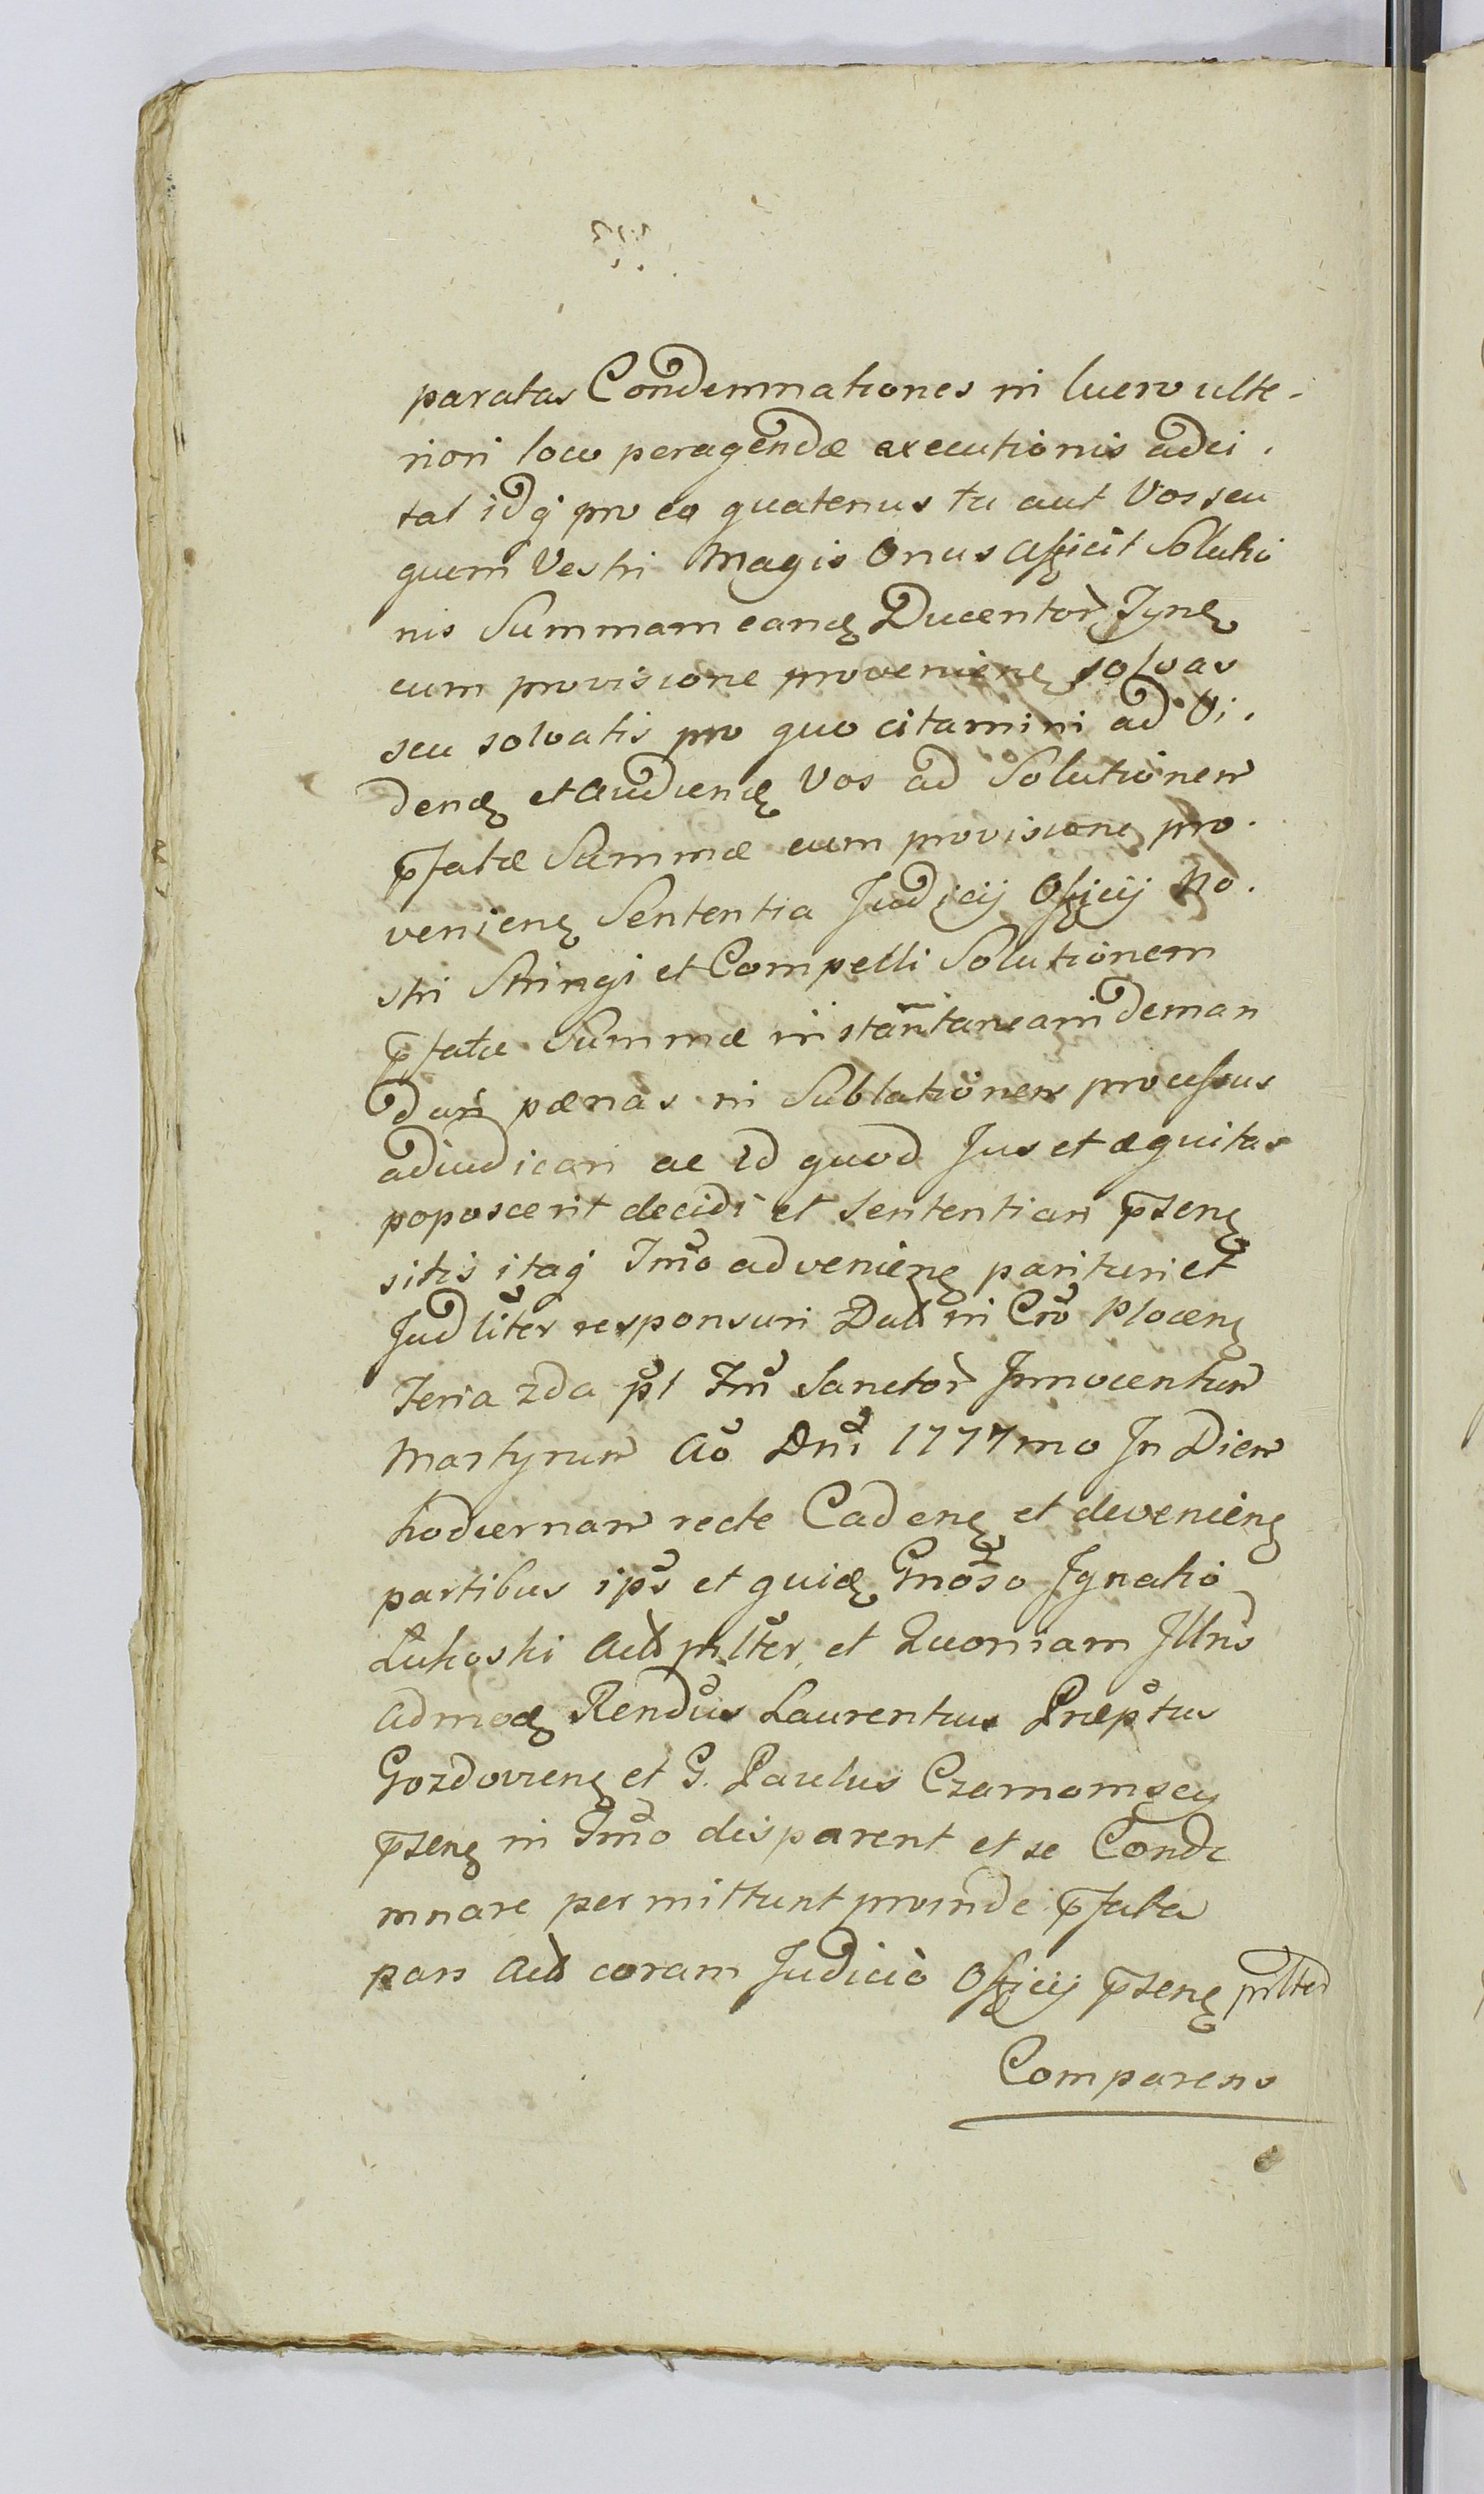 paratas Condemnationes in lucro ulte-
riori loco peragendæ executionis adci-
tat idq̃ pro eo quatenus tu aut Vos seu
quem Vestri Magis Onus afficit Solutio
nis Summam eandę Ducentor Tynę
cum provisione provenienę solvas
seu solvatis pro quo citamini ad Vi-
dendę et Audiendę Vos ad Solutionem
p̄fatæ Summæ cum provisione pro-
venienę Sententia Judicij Officij No-
stri Stringi et Compelli Solutionem
p̄fatæ Summæ instan̄taneam deman
dari pænas in Sublationem processus
adiudicari ac id quod Jus et æquitas
poposcerit decidi et Sententiari p̄senę
sitis itaq̃ Tm̃o advenienę parituri et
Judliter responsuri Dat in Cr̃o Plocenę
Feria 2da p̃t Fm̃ Sanctor Innocentum
Martyrum Aõ Dñi 1777mo In Diem
hodiernam recte Cadenę et devenienę
partibus ip̃s et quidę Gnõso Ignatio
Lukoski Act p̃rlter et Quoniam Illris
admodę Rendus Laurentius Præp̃tus
Gozdovienę et G. Paulus Czarnomscy
p̄senę in Tm̃o disparent et se Conde
mnare permittunt proinde p̄fata
pars Act coram Judicio Officij p̄senę p̃rlter
Comparens